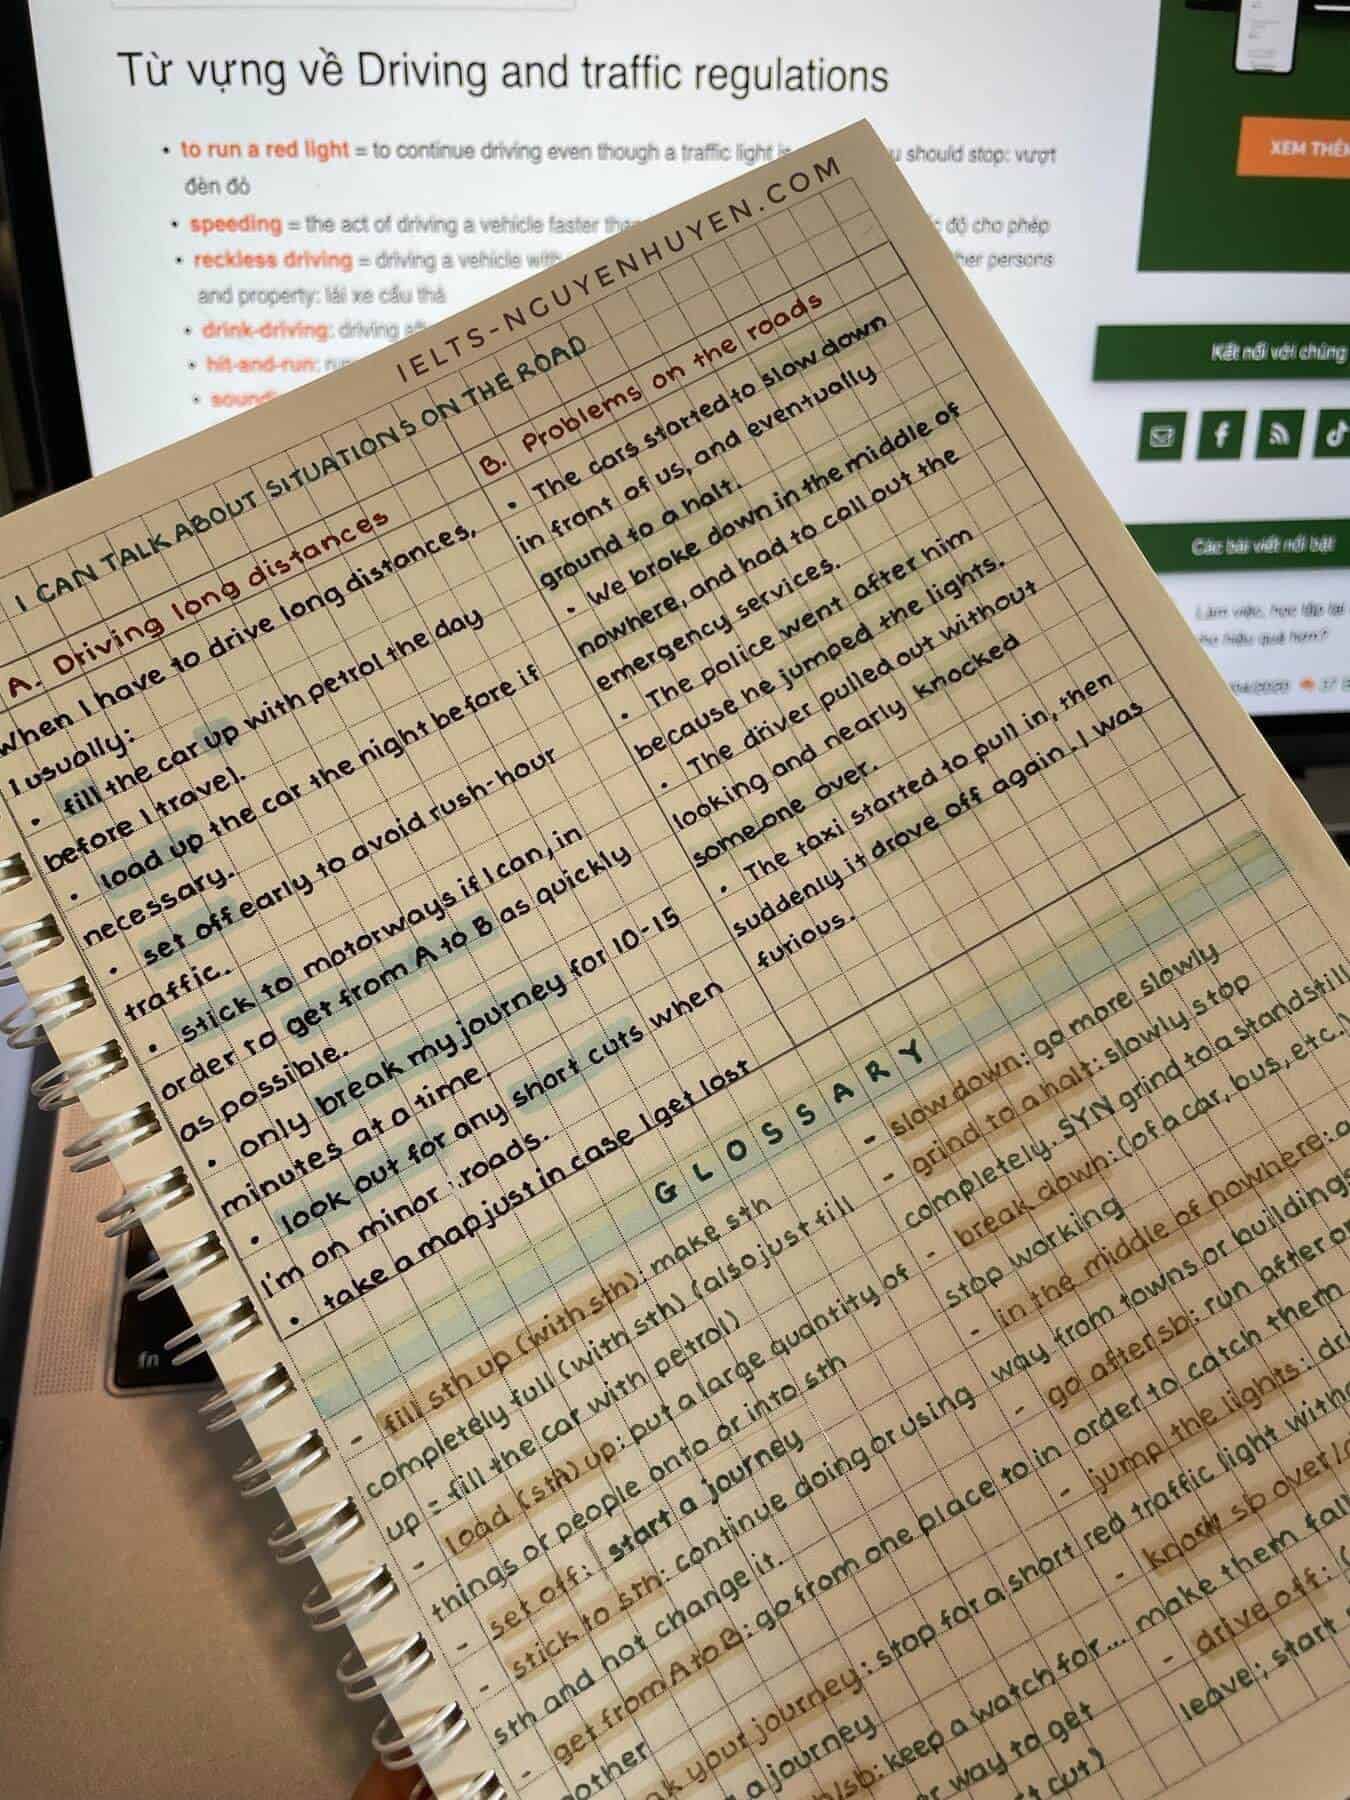 Từ vựng về Driving and traffic regulations
• to run a red light = to continue driving even though a traffic light should stop: vượt
đèn đỏ
• speeding = the act of driving a vehicle faster độ cho phép
• reckless driving = driving a vehicle persons
and property: lái xe cẩu thả
• drink-driving: driving
• hit-and-run:
XEM THÊM
Kết nối với chúng
Các bài viết nổi bật
Làm việc, học tập tại
hiệu quả hơn?
IELTS-NGUYENHUYEN.COM
I CAN TALK ABOUT SITUATIONS ON THE ROAD
A. Driving long distances
When I have to drive long distances,
I usually:
• fill the car up with petrol the day
before I travel.
• load up the car the night before if
necessary.
• set off early to avoid rush-hour
traffic.
• stick to motorways if I can, in
order to get from A to B as quickly
as possible.
• only break my journey for 10-15
minutes at a time.
• look out for any short cuts when
I'm on minor roads.
• take a map just in case I get lost
B. Problems on the roads
• The cars started to slow down
in front of us, and eventually
ground to a halt.
• We broke down in the middle of
nowhere, and had to call out the
emergency services.
• The police went after him
because he jumped the lights.
• The driver pulled out without
looking and nearly knocked
someone over.
• The taxi started to pull in, then
suddenly it drove off again. I was
furious.
GLOSSARY
- fill sth up (with sth): make sth
completely full (with sth) (also just fill
up = fill the car with petrol)
- load (sth) up: put a large quantity of
things or people onto or into sth
- set off: start a journey
- stick to sth: continue doing or using
sth and not change it.
- get from A to B: go from one place to
other
your journey: stop for a short
a journey
/sb: keep a watch for...
way to get
cut)
- slow down: go more slowly
- grind to a halt: slowly stop
completely. SYN grind to a standstill
- break down: (of a car, bus, etc.)
stop working
- in the middle of nowhere:
way from towns or buildings
- go after sb: run after or
in order to catch them
- jump the lights:
red traffic light
- knock sb over/
make them fall
- drive off: (
leave; start
fn